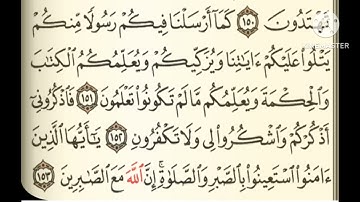 تَهْتَدُونَ ١٥٠ كَمَآ أَرْسَلْنَا فِيكُمْ رَسُولًا مِّنكُمْ
يَتْلُوا۟ عَلَيْكُمْ ءَايَٰتِنَا وَيُزَكِّيكُمْ وَيُعَلِّمُكُمُ ٱلْكِتَٰبَ
وَٱلْحِكْمَةَ وَيُعَلِّمُكُم مَّا لَمْ تَكُونُوا۟ تَعْلَمُونَ ١٥١ فَٱذْكُرُونِىٓ
أَذْكُرْكُمْ وَٱشْكُرُوا۟ لِى وَلَا تَكْفُرُونِ ١٥٢ يَٰٓأَيُّهَا ٱلَّذِينَ
ءَامَنُوا۟ ٱسْتَعِينُوا۟ بِٱلصَّبْرِ وَٱلصَّلَوٰةِ ۚ إِنَّ ٱللَّهَ مَعَ ٱلصَّٰبِرِينَ ١٥٣